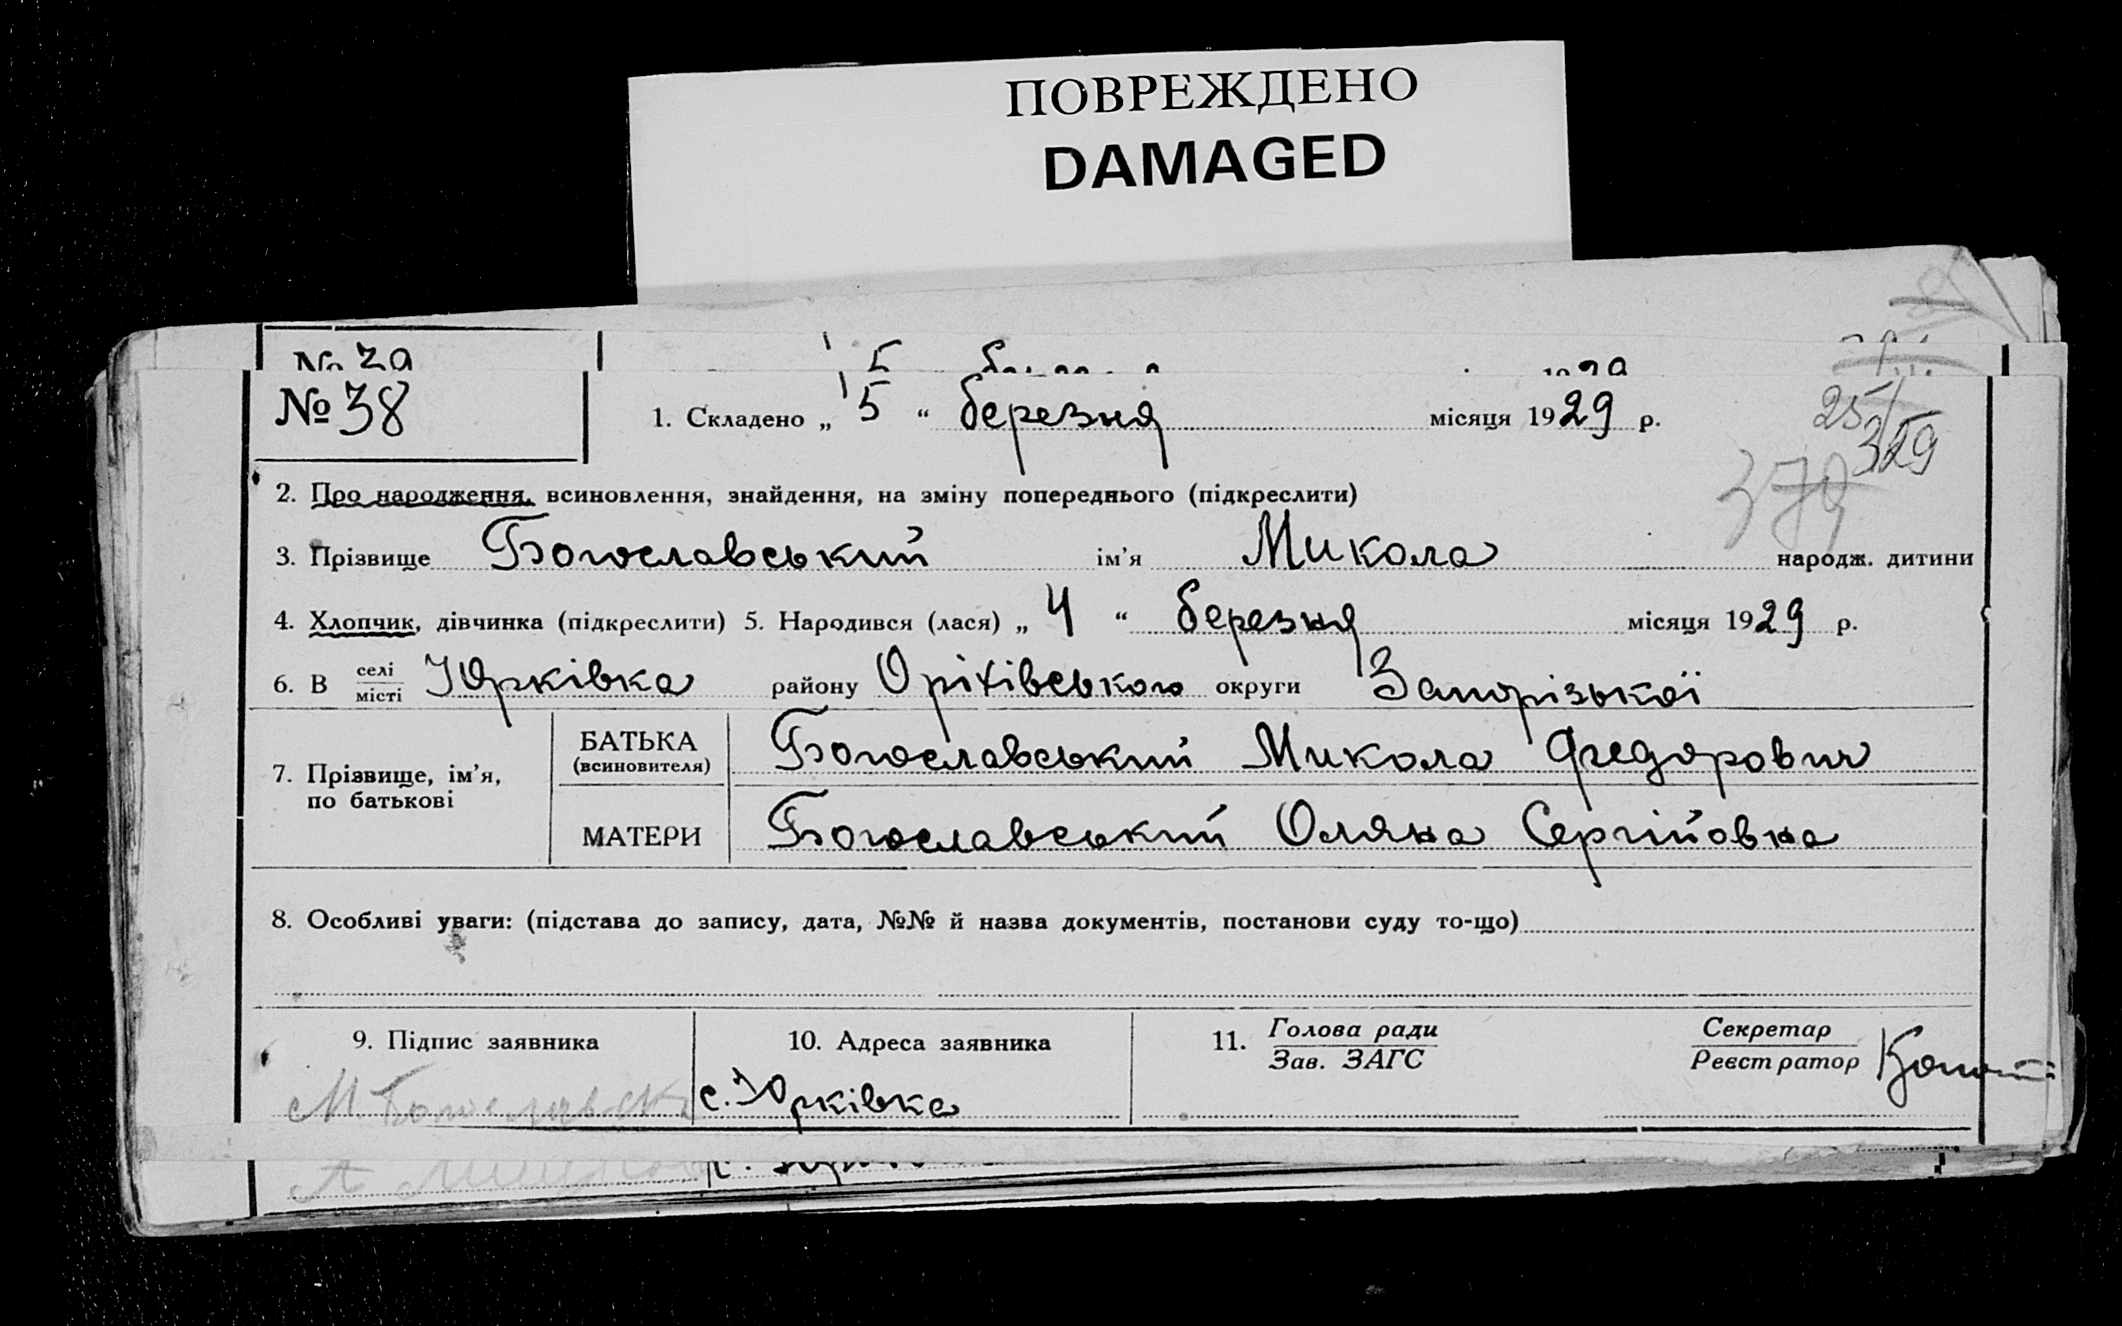 ПОВРЕЖДЕНО
DAMAGED
№ 39
№ 38
1. Складено „ 5 “ березня місяця 1929 р.
25/
329
379
2. Про народження, всиновлення, знайдення, на зміну попереднього (підкреслити)
3. Прізвище Богославський ім'я Микола народж. дитини
4. Хлопчик, дівчинка (підкреслити) 5. Народився (лася) „ 4 “ березня місяця 1929 р.
6. В селі місті Юрківка району Оріхівського округи Запорізької
7. Прізвище, ім'я, по батькові
БАТЬКА (всиновителя) Богославський Микола Федорович
МАТЕРИ Богославський Оляна Сергійовна
8. Особливі уваги: (підстава до запису, дата, №№ й назва документів, постанови суду то-що)
9. Підпис заявника 10. Адреса заявника 11. Голова ради Зав. ЗАГС Секретар Реєстратор
М Богославськ с. Юрківка